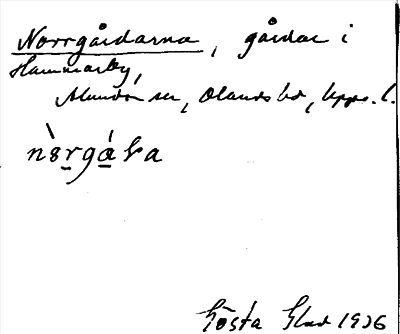 Norrgårdarna, gårdar i
Hammarby,
Alunda sn, Olands hd, Upps. l.
Gösta 1936